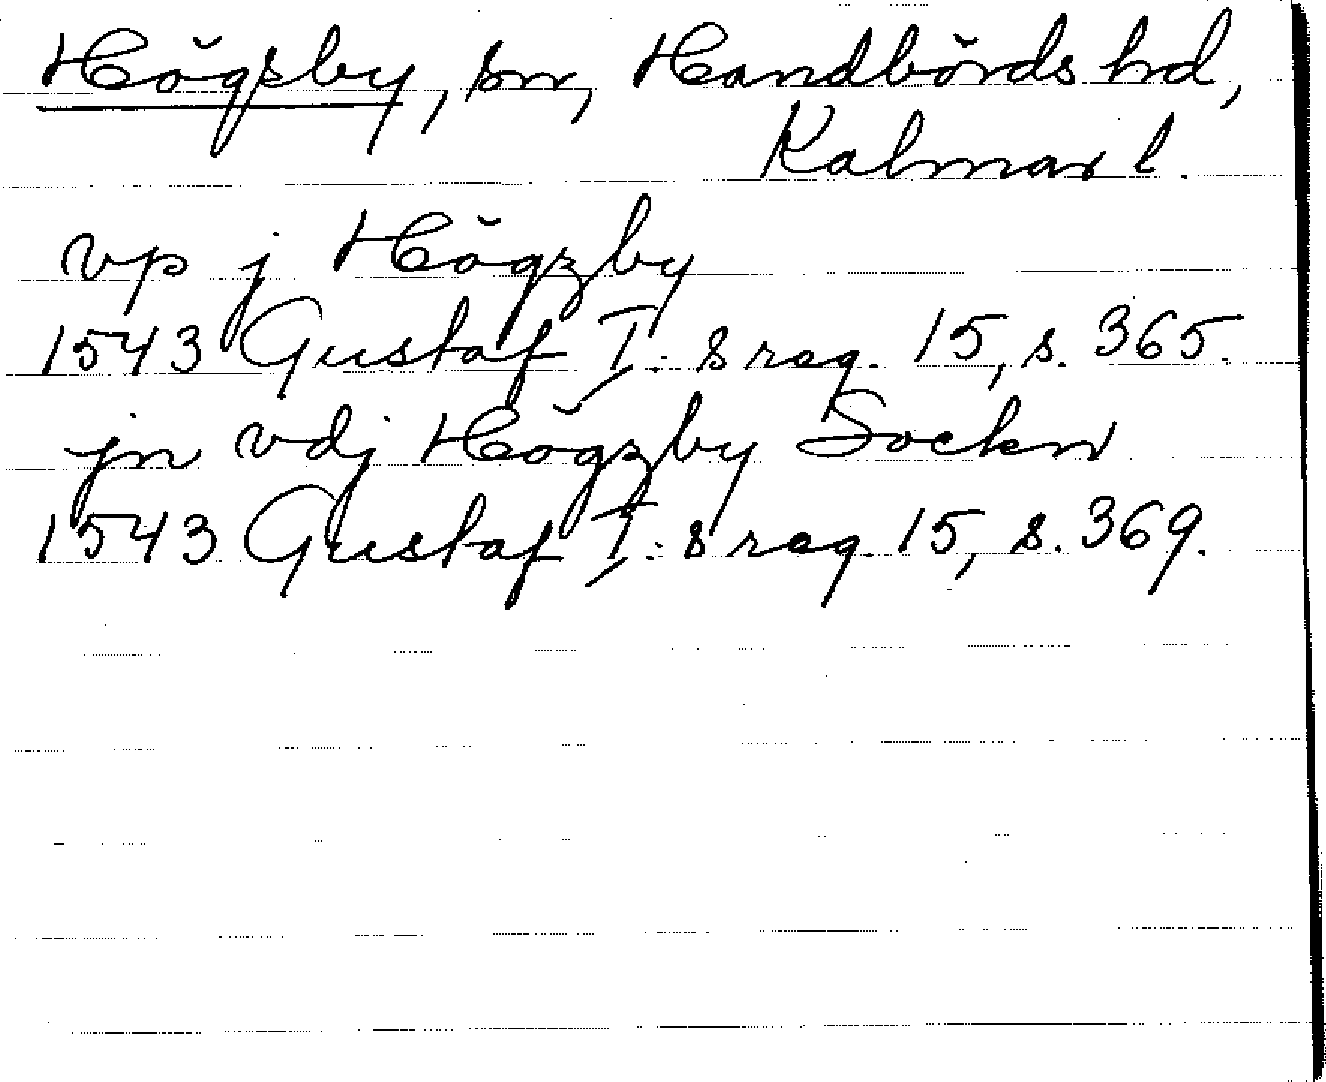 Högsby, sn, Handbörds hd,
Kalmar l.
vp j Högzby
1543 Gustaf I:s reg. 15, s. 365.
jn vdj Högzby Sockn
1543 Gustaf I:s reg 15, s. 369.